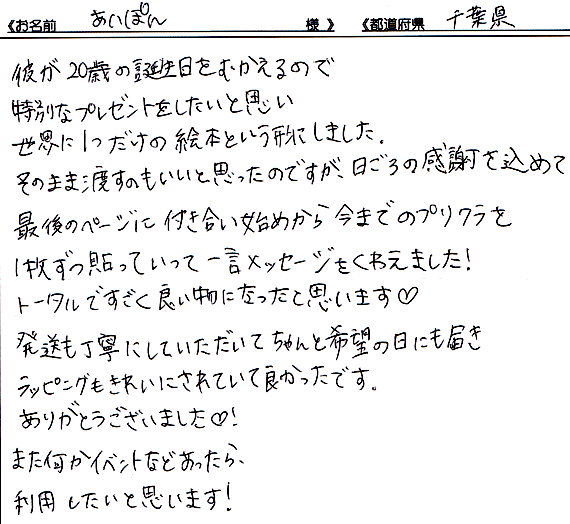 《お名前 あいぽん 様》 《都道府県 千葉県
彼が20歳の誕生日をむかえるので
特別なプレゼントをしたいと思い
世界に1つだけの絵本という形にしました。
そのまま渡すのもいいと思ったのですが、日ごろの感謝を込めて
最後のページに付き合い始めから今までのプリクラを
1枚ずつ貼っていって一言メッセージをくわえました!
トータルですごく良い物になったと思います♡
発送も丁寧にしていただいてちゃんと希望の日にも届き
ラッピングもきれいにされていて良かったです。
ありがとうございました♡!
また何かイベントなどあったら、
利用したいと思います!